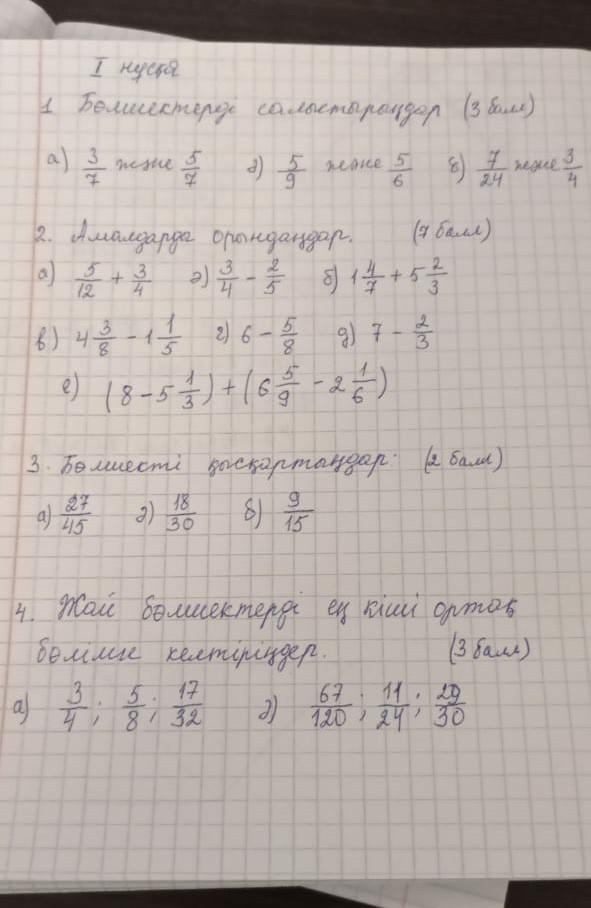 I нұсқа
1 Бөлшектерді салыстырыңдар (3 балл)
а) 3/7 және 5/7 ә) 5/9 және 5/6 б) 7/24 және 3/4
2. Амалдарды орындаңдар. (7 балл)
а) 5/12 + 3/4 ә) 3/4 - 2/5 б) 1 4/7 + 5 2/3
в) 4 3/8 - 1 1/5 г) 6 - 5/8 д) 7 - 2/3
е) (8 - 5 1/3) + (6 5/9 - 2 1/6)
3. Бөлшекті қысқартыңдар: (2 балл)
а) 27/45 ә) 18/30 б) 9/15
4. Жай бөлшектерді ең кіші ортақ
бөлімге келтіріңдер. (3 балл)
а) 3/4; 5/8; 17/32 ә) 67/120; 11/24; 29/30